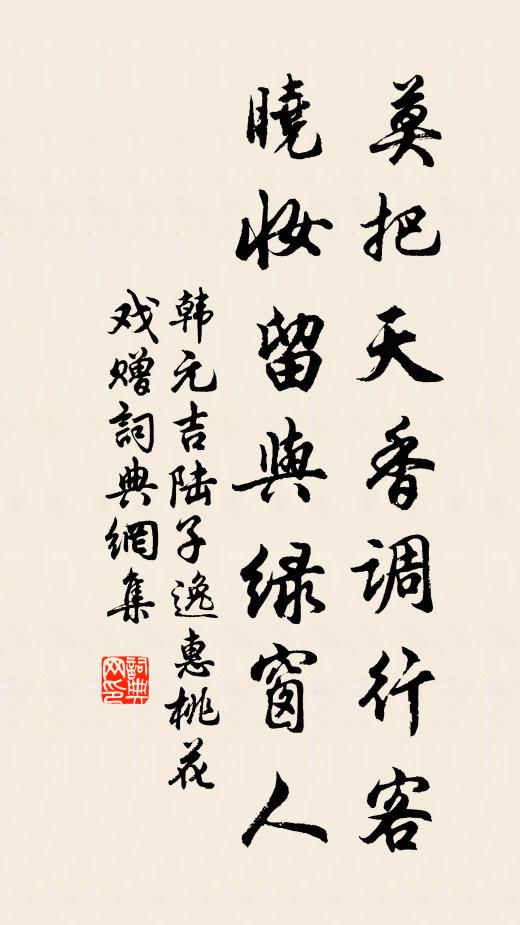 莫把天香調行客
曉妆留與绿窗人
韩元吉陆子逸惠桃花
戏赠詞典網集
詞典网印